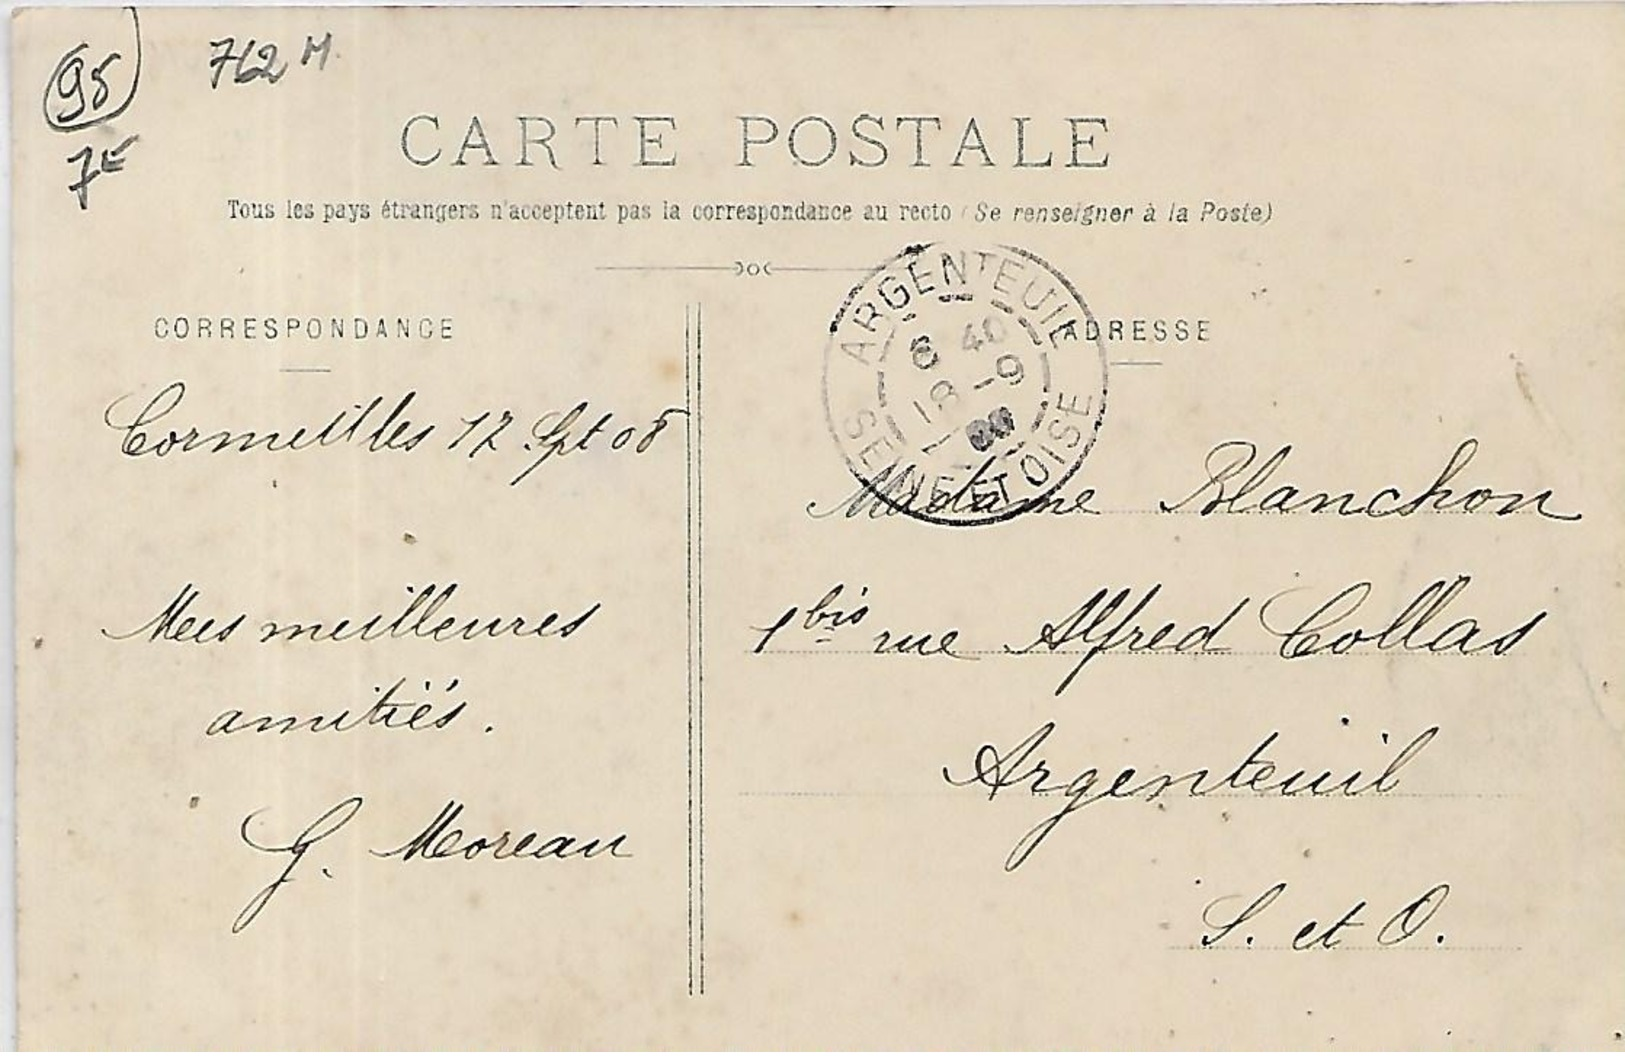 95
762 M
7E
CARTE POSTALE
Tous les pays étrangers n'acceptent pas la correspondance au recto (Se renseigner à la Poste)
CORRESPONDANCE
ADRESSE
ARGENTEUIL
6 40
18 -9
08
SEINE ET OISE
Cormeilles 17 Spt 08
Mes meilleures
amitiés.
G. Moreau
Madame Blanchon
1 bis rue Alfred Collas
Argenteuil
S. et O.